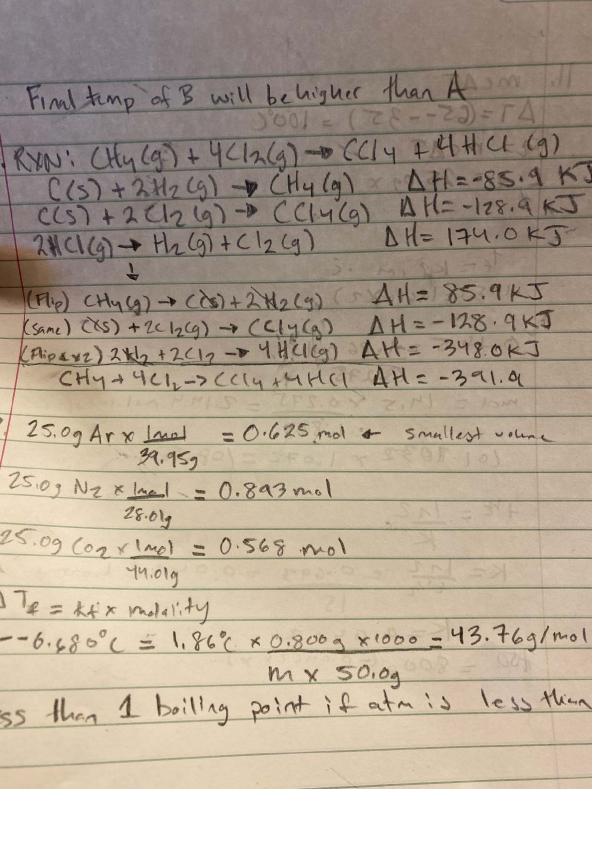 Final temp of B will be higher than A
RXN: CH4(g) + 4Cl2(g) → CCl4 + 4HCl (g)
C(s) + 2H2(g) → CH4(g) ΔH = -85.9 KJ
C(s) + 2Cl2(g) → CCl4(g) ΔH = -128.9 KJ
2HCl(g) → H2(g) + Cl2(g) ΔH = 174.0 KJ
↓
(Flip) CH4(g) → C(s) + 2H2(g) ΔH = 85.9 KJ
(same) C(s) + 2Cl2(g) → CCl4(g) ΔH = -128.9 KJ
(Flip & x2) 2H2 + 2Cl2 → 4HCl(g) ΔH = -348.0 KJ
CH4 + 4Cl2 → CCl4 + 4HCl ΔH = -391.9
25.0g Ar x 1mol = 0.625 mol ← smallest volume
39.95g
25.0g N2 x 1mol = 0.893 mol
28.01g
25.0g CO2 x 1mol = 0.568 mol
44.01g
ΔTf = kf x molality
--0.680°C = 1.86°C x 0.800g x 1000 = 43.76g/mol
m x 50.0g
ss than 1 boiling point if atm is less than